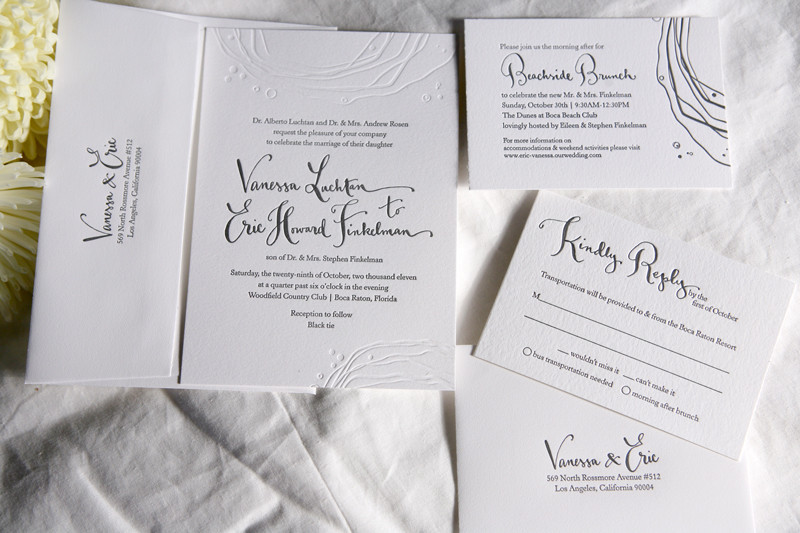 Vanessa & Eric
569 North Rossmore Avenue #512
Los Angeles, California 90004
Dr. Alberto Luchtan and Dr. & Mrs. Andrew Rosen
request the pleasure of your company
to celebrate the marriage of their daughter
Vanessa Luchtan
to
Eric Howard Finkelman
son of Dr. & Mrs. Stephen Finkelman
Saturday, the twenty-ninth of October, two thousand eleven
at a quarter past six o'clock in the evening
Woodfield Country Club | Boca Raton, Florida
Reception to follow
Black tie
Please join us the morning after for
Beachside Brunch
to celebrate the new Mr. & Mrs. Finkelman
Sunday, October 30th | 9:30AM-12:30PM
The Dunes at Boca Beach Club
lovingly hosted by Eileen & Stephen Finkelman
For more information on
accommodations & weekend activities please visit
www.eric-vanessa.ourwedding.com
Kindly Reply
by the
first of October
Transportation will be provided to & from the Boca Raton Resort
M
wouldn't miss it can't make it
bus transportation needed morning after brunch
Vanessa & Eric
569 North Rossmore Avenue #512
Los Angeles, California 90004